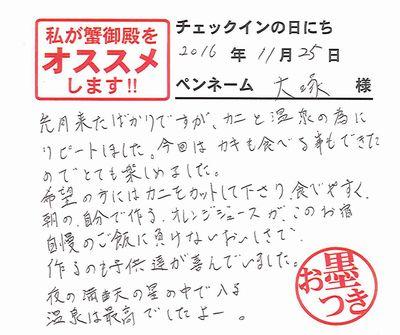 私が蟹御殿を
オススメ
します!!
チェックインの日にち
2016 年 11月25日
ペンネーム 大塚 様
先月来たばかりですが、カニと温泉の為に
リピートしました。今回はカキも食べる事もできた
のでとても楽しめました。
希望の方にはカニをカットして下さり、食べやすく、
朝の、自分で作る、オレンジジュースが、このお宿
自慢のご飯に負けないおいしさで、
作るのも子供達が喜んでいました。
夜の満天の星の中で入る
温泉は最高でしたよー。
お墨つき